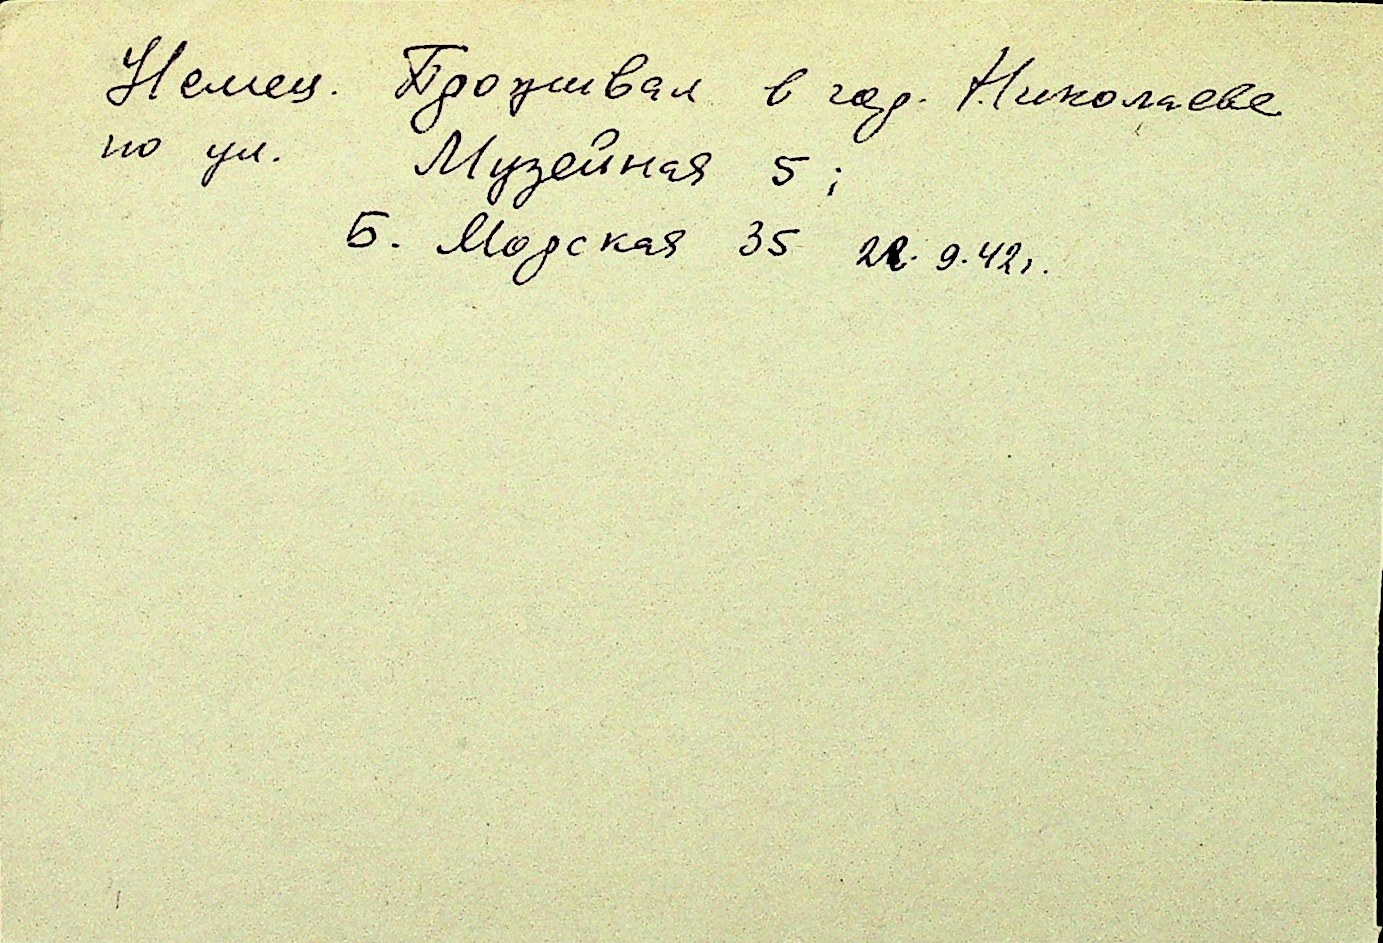 Немец. Проживал в гор. Николаеве
по ул. Музейная 5;
Б. Морская 35 22.9.42г.